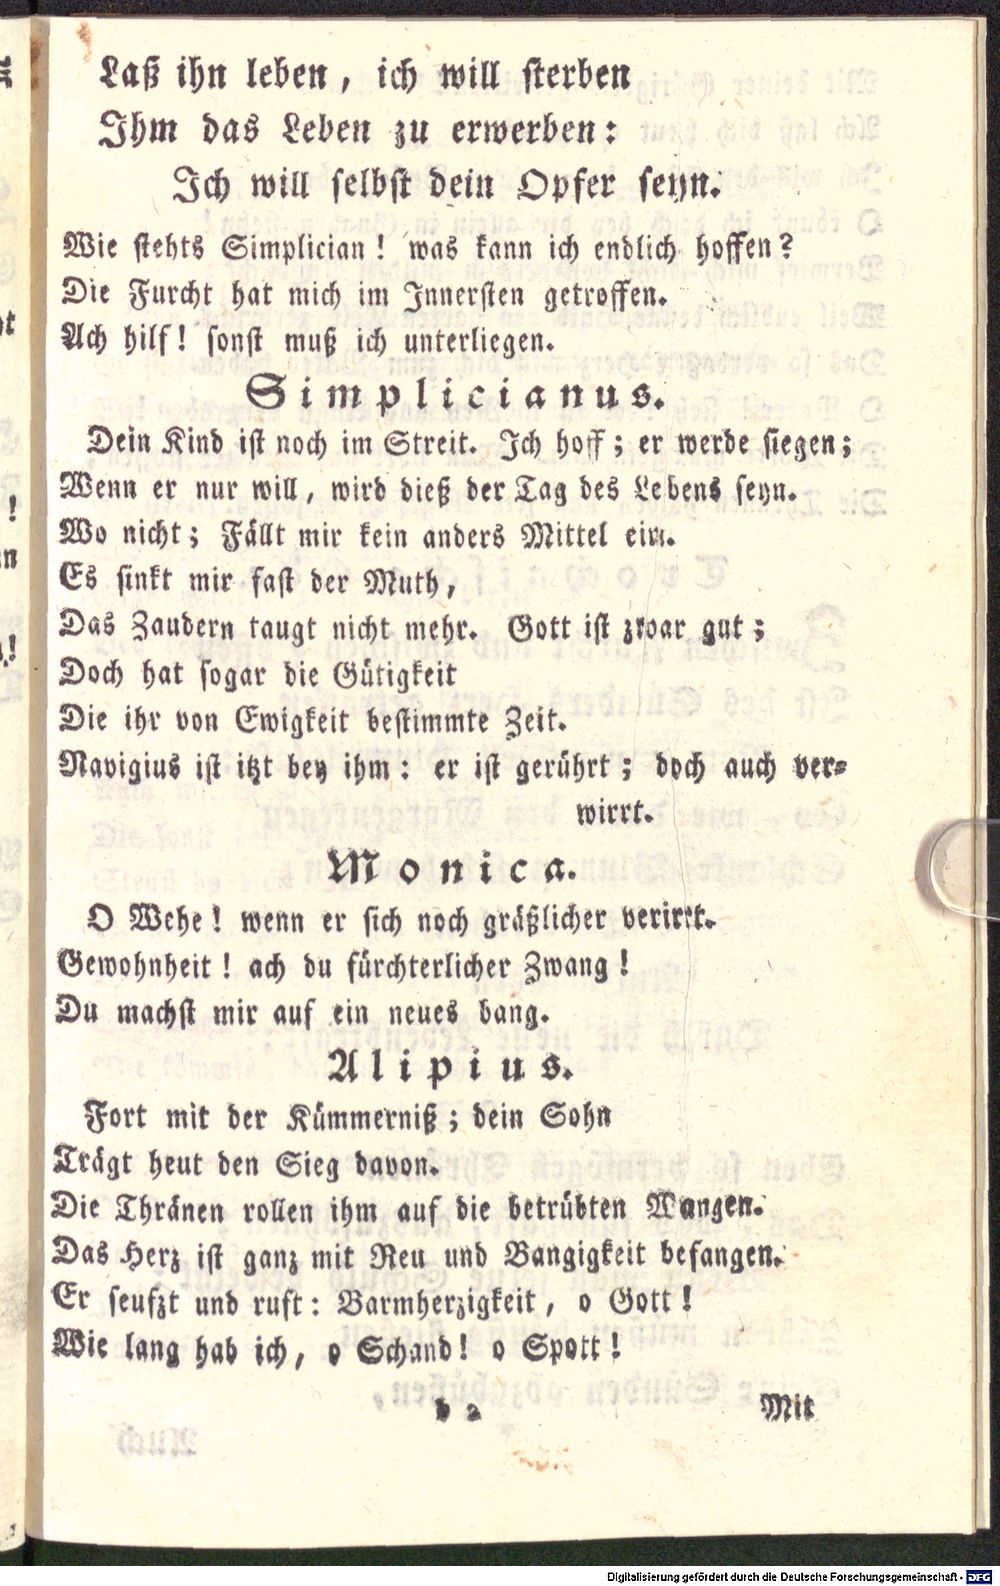 Laß ihn leben, ich will sterben
Ihm das Leben zu erwerben:
Ich will selbst dein Opfer seyn.
Wie stehts Simplician! was kann ich endlich hoffen?
Die Furcht hat mich im Innersten getroffen.
Ach hilf! sonst muß ich unterliegen.
Simplicianus.
Dein Kind ist noch im Streit. Ich hoff; er werde siegen;
Wenn er nur will, wird dieß der Tag des Lebens seyn.
Wo nicht; Fällt mir kein anders Mittel ein.
Es sinkt mir fast der Muth,
Das Zaudern taugt nicht mehr. Gott ist zwar gut;
Doch hat sogar die Gütigkeit
Die ihr von Ewigkeit bestimmte Zeit.
Navigius ist itzt bey ihm: er ist gerührt; doch auch ver-
wirrt.
Monica.
O Wehe! wenn er sich noch gräßlicher verirrt.
Gewohnheit! ach du fürchterlicher Zwang!
Du machst mir auf ein neues bang.
Alipius.
Fort mit der Kümmerniß; dein Sohn
Trägt heut den Sieg davon.
Die Thränen rollen ihm auf die betrübten Wangen.
Das Herz ist ganz mit Reu und Bangigkeit befangen.
Er seufzt und ruft: Barmherzigkeit, o Gott!
Wie lang hab ich, o Schand! o Spott!
b 2 Mit
Digitalisierung gefördert durch die Deutsche Forschungsgemeinschaft - DFG